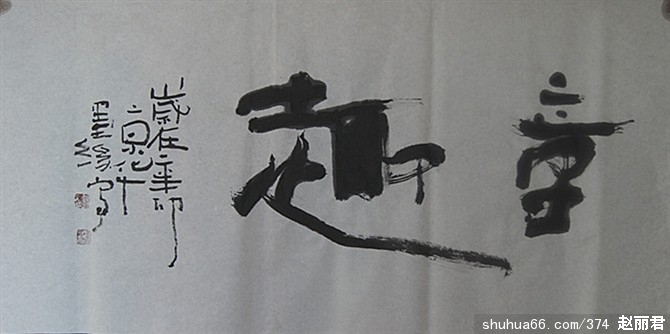 童趣
歲在辛卯
京华
墨缘写
shuhua66.com/374 赵丽君